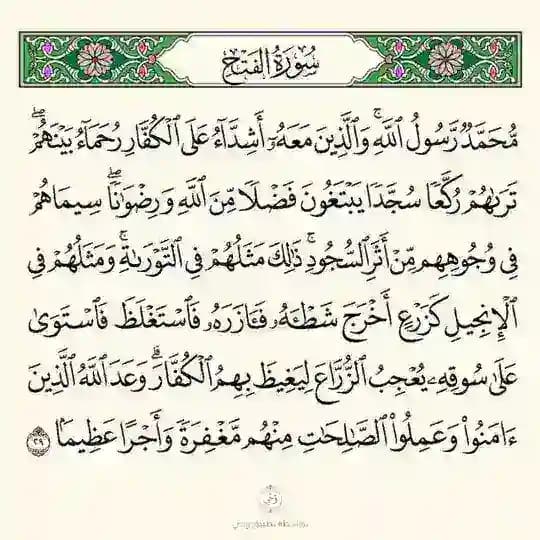 سُورَةُ الفَتْحِ
مُّحَمَّدٌ رَّسُولُ ٱللَّهِۚ وَٱلَّذِينَ مَعَهُۥٓ أَشِدَّآءُ عَلَى ٱلْكُفَّارِ رُحَمَآءُ بَيْنَهُمْۖ
تَرَىٰهُمْ رُكَّعًا سُجَّدًا يَبْتَغُونَ فَضْلًا مِّنَ ٱللَّهِ وَرِضْوَٰنًاۖ سِيمَاهُمْ
فِى وُجُوهِهِم مِّنْ أَثَرِ ٱلسُّجُودِۚ ذَٰلِكَ مَثَلُهُمْ فِى ٱلتَّوْرَىٰةِۚ وَمَثَلُهُمْ فِى
ٱلْإِنجِيلِ كَزَرْعٍ أَخْرَجَ شَطْـَٔهُۥ فَـَٔازَرَهُۥ فَٱسْتَغْلَظَ فَٱسْتَوَىٰ
عَلَىٰ سُوقِهِۦ يُعْجِبُ ٱلزُّرَّاعَ لِيَغِيظَ بِهِمُ ٱلْكُفَّارَۗ وَعَدَ ٱللَّهُ ٱلَّذِينَ
ءَامَنُوا۟ وَعَمِلُوا۟ ٱلصَّٰلِحَٰتِ مِنْهُم مَّغْفِرَةً وَأَجْرًا عَظِيمًۢا ٢٩